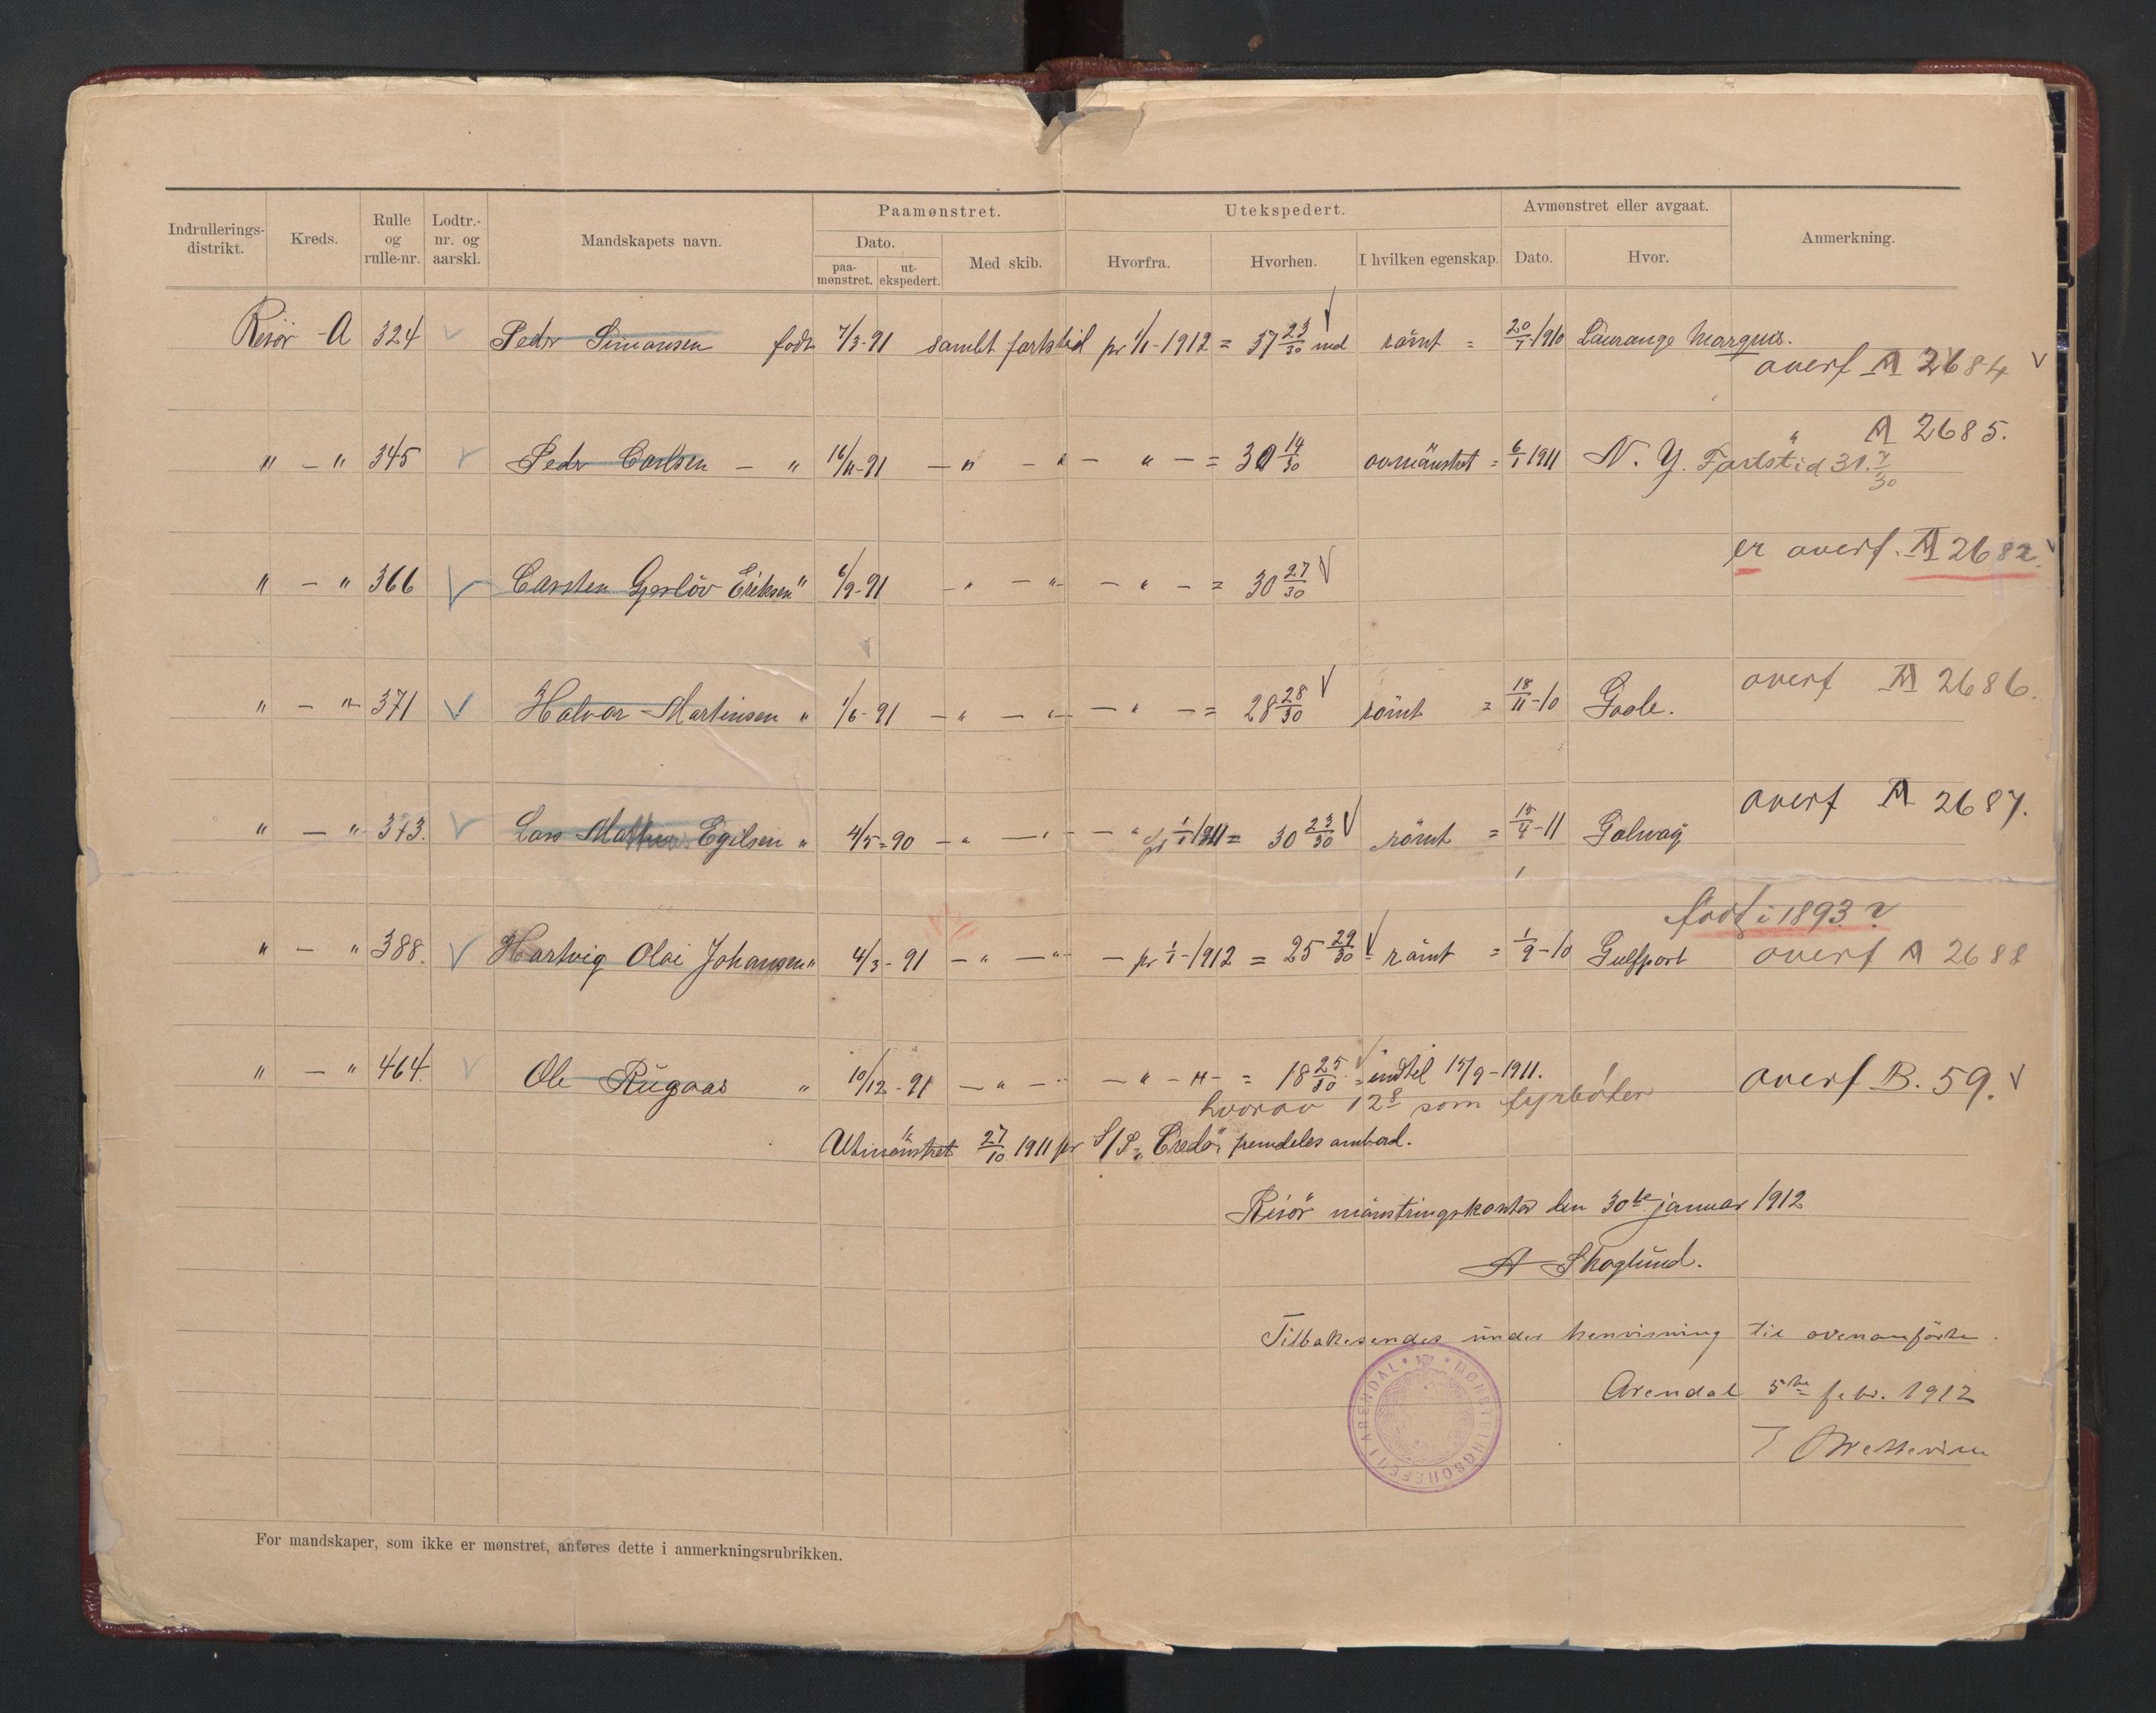 Indrullerings-distrikt. Kreds. Rulle og rulle-nr. Lodtr.-nr. og aarskl. Mandskapets navn. Paamønstret. Dato. paa-mønstret. ut-ekspedert. Med skib. Utekspedert. Hvorfra. Hvorhen. I hvilken egenskap. Avmønstret eller avgaat. Dato. Hvor. Anmerkning.
Risör - A 324 Peder Simonsen født 7/3-91 samlet fartstid pr 1/1-1912 = 37 23/30 md römt = 20/1-1910 Laurange Marquis.
overf A 2684
" A 2685.
" - " 345 Peder Carlsen - " 16/11-91 - " - " - " - = 30 14/30 avmönstret = 6/1 1911 N. Y. Fartstid 31. 7/30
er overf. A 2682.
" - " 366 Carsten Gjerlöv Eriksen " 6/9-91 - " - " - " - = 30 27/30
overf A 2686.
" - " 371 Halvor Martinsen " 1/6-91 - " - " - " - = 28 28/30 römt = 18/11-10 Goole.
overf A 2687.
" - " 373. Lars Mathias Egilsen " 4/5-90 - " - " - " pr 1/1 1911 = 30 23/30 römt = 15/4-11 Galway
født i 1893?
" - " 388. Hartvig Olai Johansen " 4/3-91 - " - " - pr 1/1-1912 = 25 29/30 - römt = 1/9-10 Gulfport overf A 2688
" - " 464. Ole Rügaas " 10/12-91 - " - " - " - " - = 18 25/30 = indtil 15/9-1911. overf B. 59.
hvorav 12 8 som fyrböter
Utmönstret 27/10 1911 pr S/S "Credo", fremdeles ombord.
Risör mönstringskontor den 30te januar 1912
A Skoglund.
Tilbakesendes under henvisning til ovenanförte.
Arendal 5te febr. 1912
MØNSTRINGSCHEFEN I ARENDAL
For mandskaper, som ikke er mønstret, anføres dette i anmerkningsrubrikken.